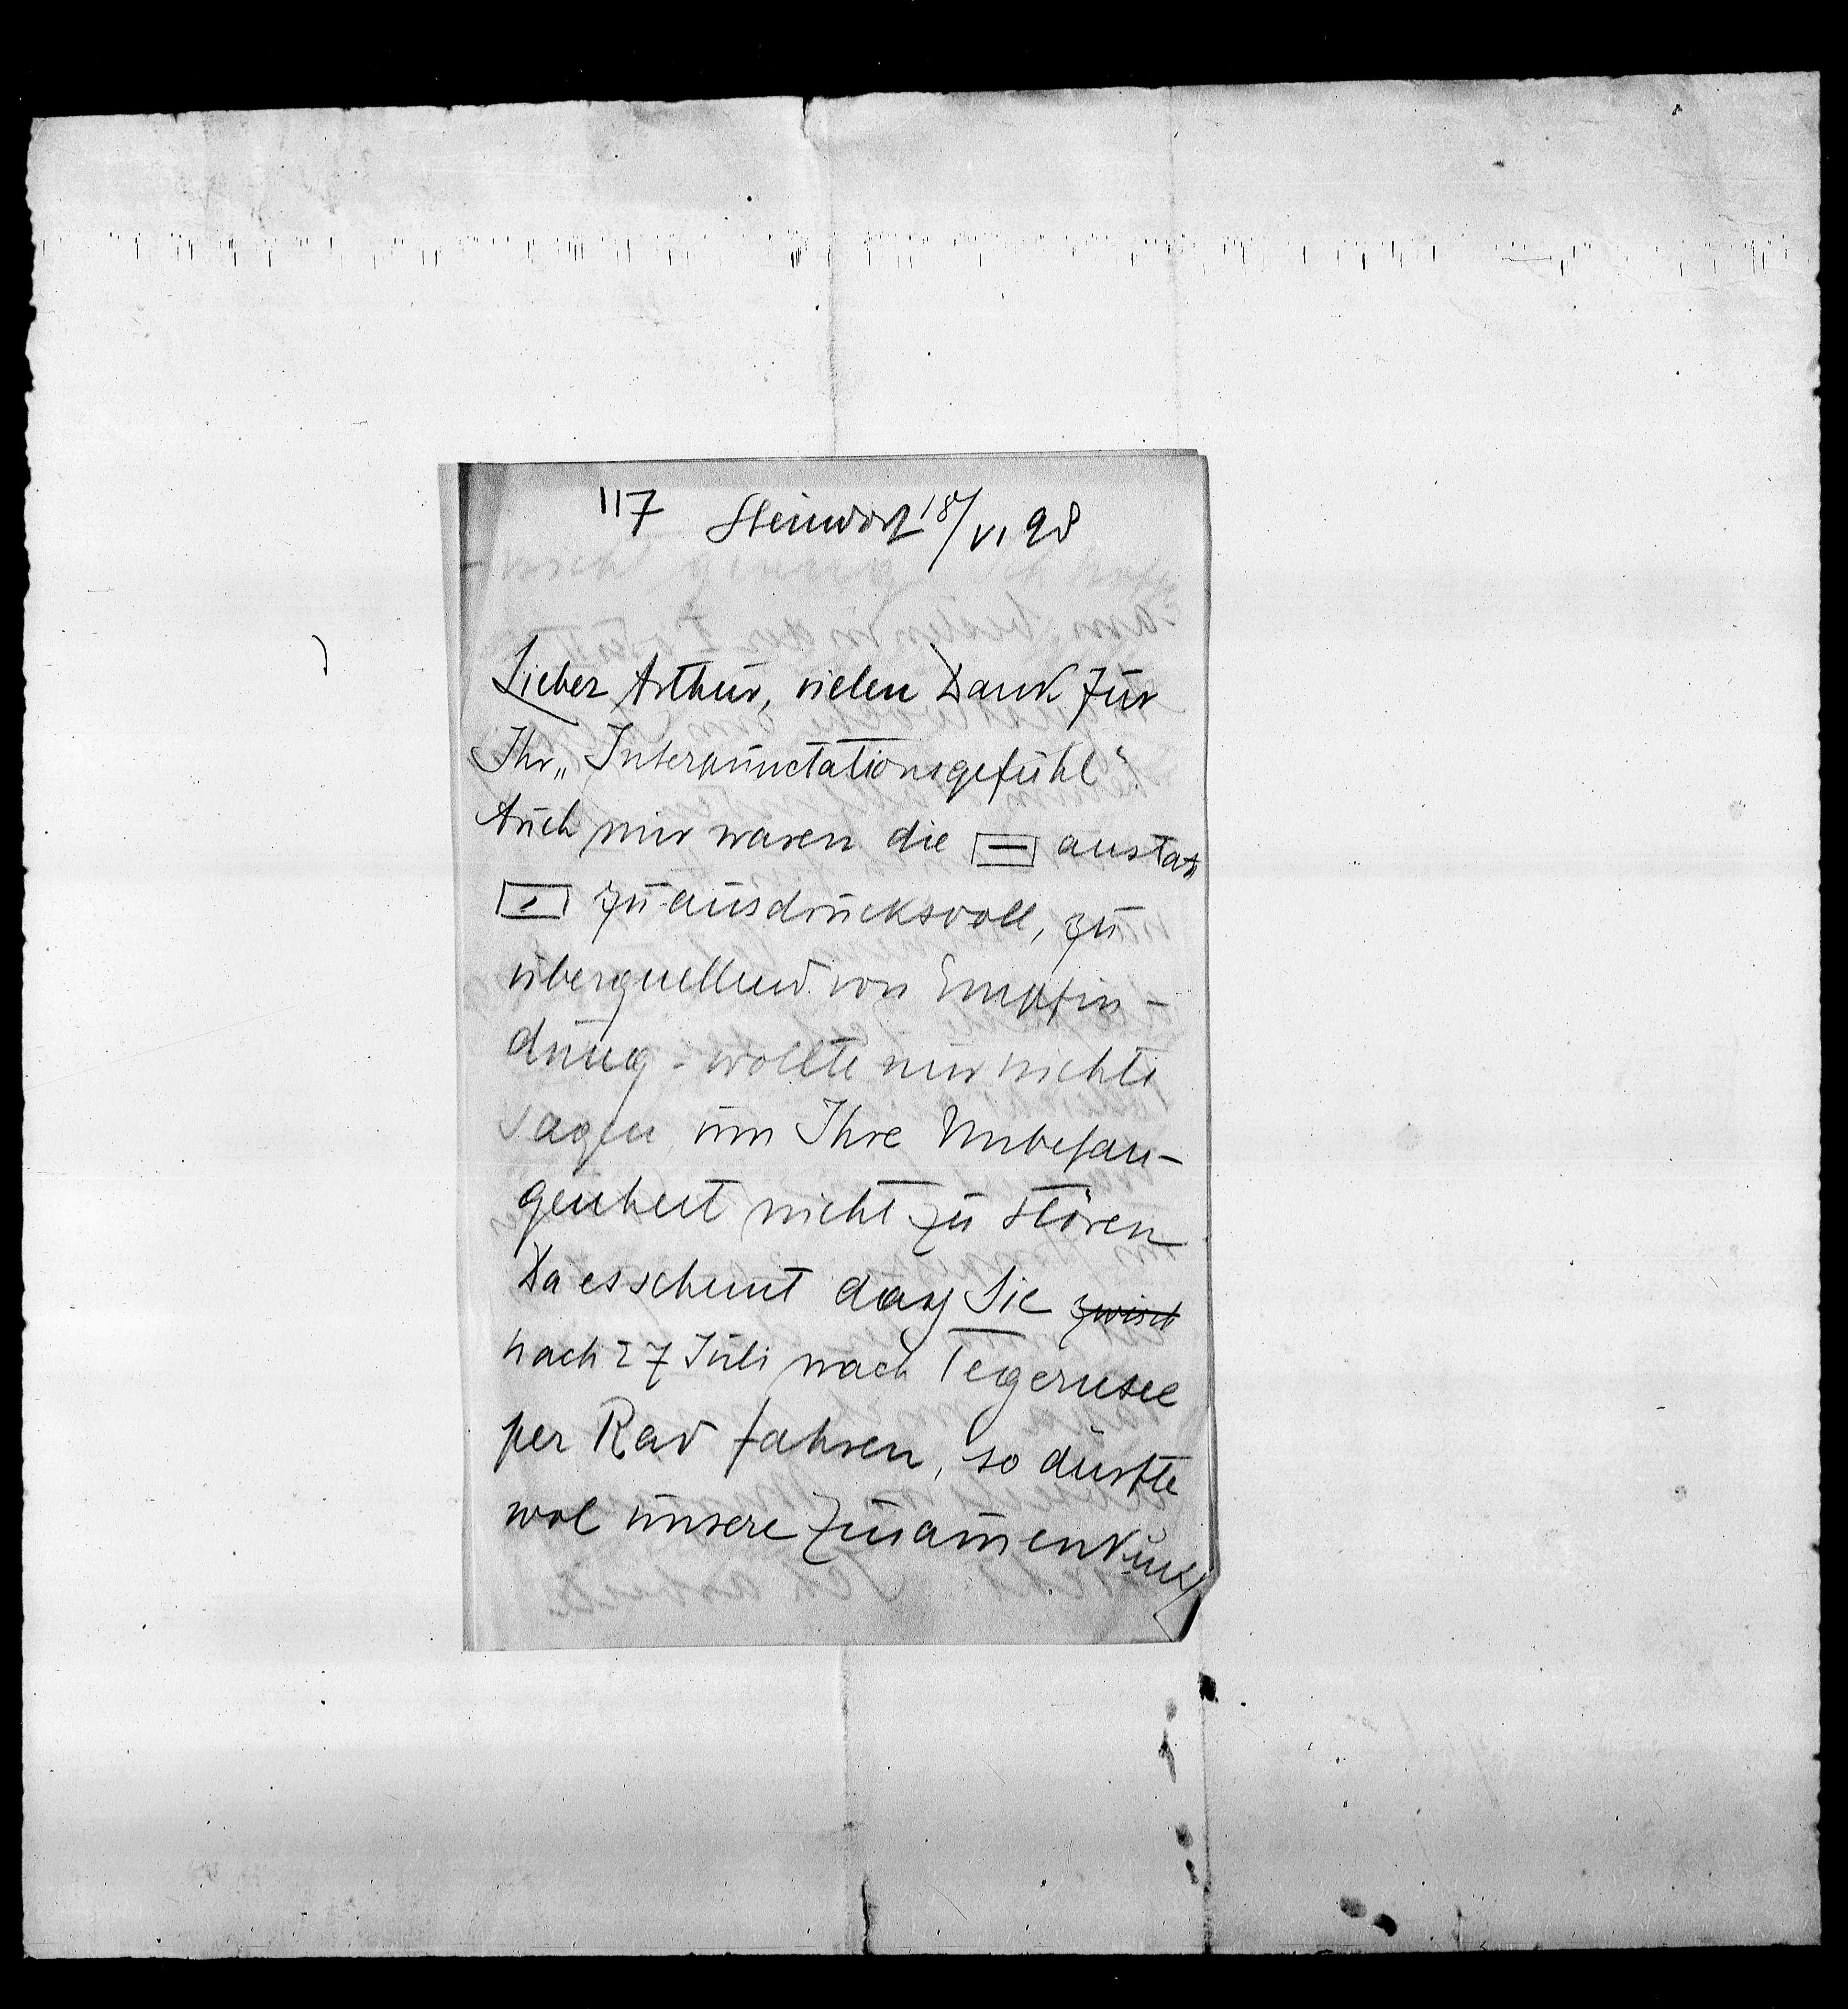 117 Steindorf 18/VI 98
Lieber Arthur, vielen Dank für
Ihr „Interpunctationsgefühl“.
Auch mir waren die [–] anstatt
[,] zu ausdrucksvoll, zu
überquellend von Empfin-
dung – wollte nur nichts
sagen um Ihre Unbefan-
genheit nicht zu stören
Da es scheint dass Sie zwisch
nach 27 Juli nach Tegernsee
per Rad fahren, so dürfte
wol unsere Zusam̄enkunft